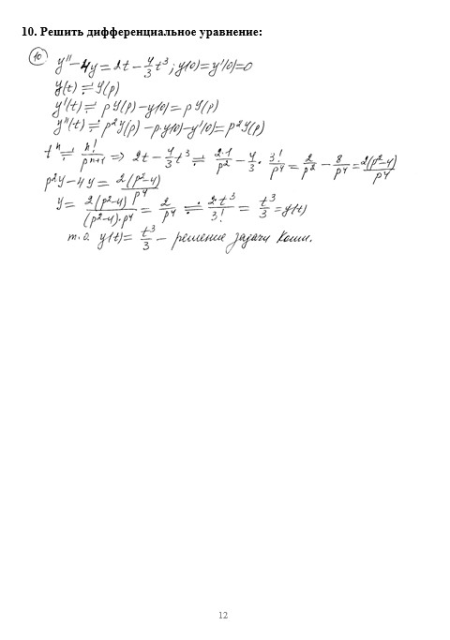 10. Решить дифференциальное уравнение:
10
y'' - 4y = 2t - 4/3 t³; y(0) = y'(0) = 0
y(t) ≓ Y(p)
y'(t) ≓ pY(p) - y(0) = pY(p)
y''(t) ≓ p²Y(p) - p·y(0) - y'(0) = p²Y(p)
tⁿ ≓ n!/pⁿ⁺¹ => 2t - 4/3 t³ ≓ 2·1/p² - 4/3 · 3!/p⁴ = 2/p² - 8/p⁴ = 2(p²-4)/p⁴
p²Y - 4Y = 2(p²-4)/p⁴
Y = 2(p²-4)/((p²-4)·p⁴) = 2/p⁴ ≓ 2·t³/3! = t³/3 = y(t)
т.о. y(t) = t³/3 - решение задачи Коши.
12